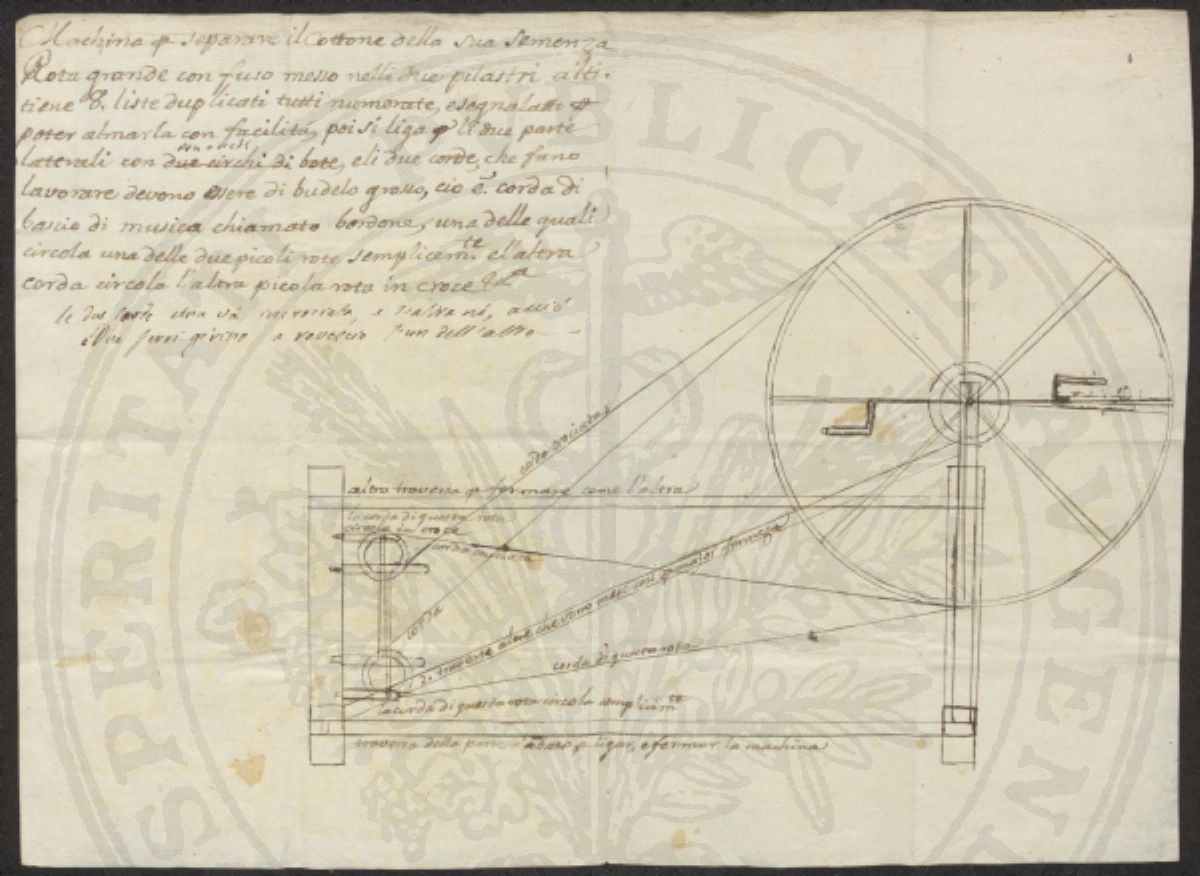 Machina p separare il Cottone della sua semenza
Rota grande con fuso messo nelli due pilastri alti.
tiene 8. liste duplicati tutti numorate, e segnalate p
poter almarla con facilità, poi si liga p li due parte
laterali con due circhi di bote, e li due corde, che fano
lavorare devono essere di budelo grosso, cio è corda di
bascio di musica chiamato bordone, una delle quali
circola una delle due picoli rote semplicem.te e l'altra
corda circola l'altra picola rota in croce &a
le due corde una và incrociata, e l'altra nò, acciò
due ferri girino a rovescio l'un dell'altro
corda
altra traversa p fermare come l'altra
la corda di questa rota
circola in croce
corda
corda
2. traverse che sono messi così
corda di questa rota
la corda di questa rota circola semplicem.te
traversa della parte p ligar, e fermar la machina
1
PROSPERITATI PUBLICAE AUGENDAE